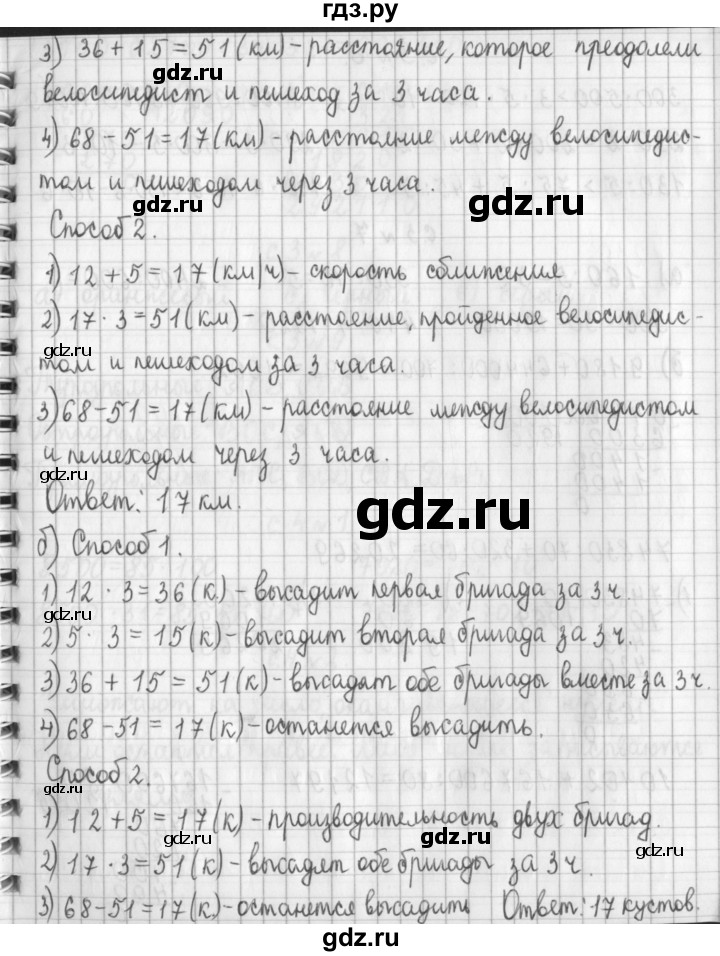 гдз.ру
3) 36 + 15 = 51 (км) - расстояние, которое преодолели
gdz.ru
велосипедист и пешеход за 3 часа.
gdz.ru
4) 68 - 51 = 17 (км) - расстояние между велосипедис-
том и пешеходом через 3 часа.
gdz.ru
Способ 2.
1) 12 + 5 = 17 (км/ч) - скорость сближения
gdz.ru
2) 17 · 3 = 51 (км) - расстояние, пройденное велосипедис-
том и пешеходом за 3 часа.
gdz.ru
3) 68 - 51 = 17 (км) - расстояние между велосипедистом
и пешеходом через 3 часа.
gdz.ru
Ответ: 17 км.
gdz.ru
б) Способ 1.
1) 12 · 3 = 36 (к) - высадит первая бригада за 3 ч.
gdz.ru
2) 5 · 3 = 15 (к) - высадит вторая бригада за 3 ч.
3) 36 + 15 = 51 (к) - высадят обе бригады вместе за 3 ч.
gdz.ru
4) 68 - 51 = 17 (к) - останется высадить.
gdz.ru
Способ 2.
1) 12 + 5 = 17 (к) - производительность двух бригад.
gdz.ru
2) 17 · 3 = 51 (к) - высадят обе бригады за 3 ч.
gdz.ru
3) 68 - 51 = 17 (к) - останется высадить Ответ: 17 кустов.
gdz.ru